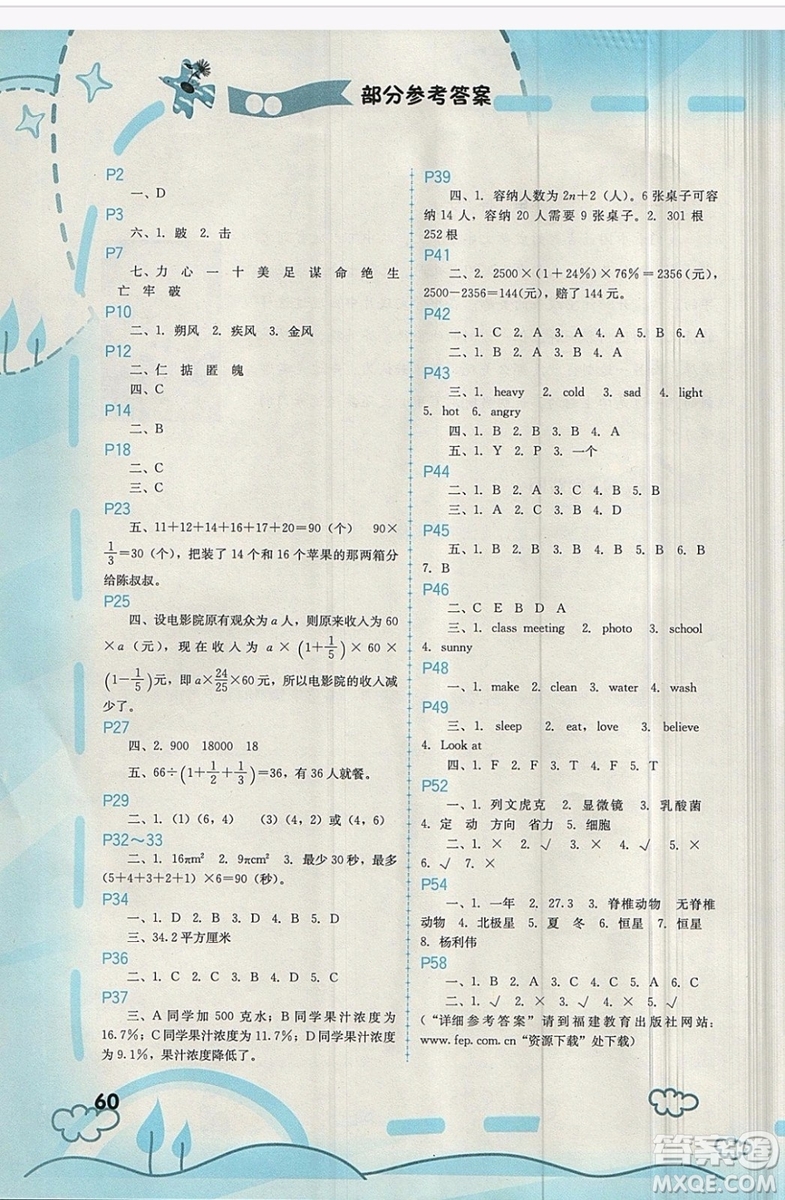 部分参考答案
P2
一、D
P3
六、1. 跛 2. 击
P7
七、力 心 一 十 美 足 谋 命 绝 生
亡 牢 破
P10
二、1. 朔风 2. 疾风 3. 金风
P12
二、仁 掂 匿 魄
四、C
P14
二、B
P18
二、C
三、C
P23
五、11+12+14+16+17+20=90（个） 90×
1/3=30（个），把装了 14 个和 16 个苹果的那两箱分
给陈叔叔。
P25
四、设电影院原有观众为 a 人，则原来收入为 60
×a（元），现在收入为 a×(1+1/5)×60×
(1-1/5)元，即 a×24/25×60 元，所以电影院的收入减
少了。
P27
四、2. 900 18000 18
五、66÷(1+1/2+1/3)=36，有 36 人就餐。
P29
二、1.（1）（6，4） （3）（4，2）或（4，6）
P32～33
二、1. 16πm² 2. 9πcm² 3. 最少 30 秒，最多
(5+4+3+2+1)×6=90（秒）。
P34
一、1. D 2. B 3. D 4. D
三、34.2 平方厘米
P36
二、1. C 2. C 3. C 4. B
P37
三、A 同学加 500 克水；B 同学果汁浓度为
16.7%；C 同学果汁浓度为 11.7%；D 同学果汁浓
度为 9.1%，果汁浓度降低了。
P39
四、1. 容纳人数为 2n+2（人）。6 张桌子可容
纳 14 人，容纳 20 人需要 9 张桌子。2. 301 根
252 根
P41
二、2. 2500×(1+24%)×76%=2356(元)，
2500-2356=144(元)，赔了 144 元。
P42
一、1. C 2. A 3. A 4. C 5. A
二、1. B 2. B 3. B 4. A 5. B 6. A
P43
三、1. heavy 2. cold 3. sad 4. light
5. hot 6. angry
四、1. B 2. B 3. B 4. A
五、1. Y 2. P 3. 一个
P44
二、1. C 2. D 3. A 4. B 5. B
三、1. C 2. A 3. B 4. D
P45
五、1. B 2. C 3. B 4. C 5. A 6. B
7. B
P46
二、C E B D A
三、1. class meeting 2. photo 3. school
4. sunny
P48
一、1. make 2. clean 3. water 4. wash
P49
三、1. sleep 2. eat, love 3. believe
4. Look at
四、1. F 2. F 3. T 4. F 5. T
P52
一、1. 列文虎克 2. 显微镜 3. 乳酸菌
4. 定 动 方向 省力 5. 细胞
二、1. × 2. × 3. × 4. √ 5. ×
6. √ 7. ×
P54
一、1. 一年 2. 27.3 3. 脊椎动物 无脊椎
动物 4. 北极星 5. 夏 冬 6. 恒星 7. 恒星
8. 杨利伟
P58
一、1. A 2. C 3. A 4. C 5. A
二、1. √ 2. × 3. × 4. × 5. √
（“详细参考答案”请到福建教育出版社网站：
www.fep.com.cn“资源下载”处下载）
60
答案圈
MXQE.COM